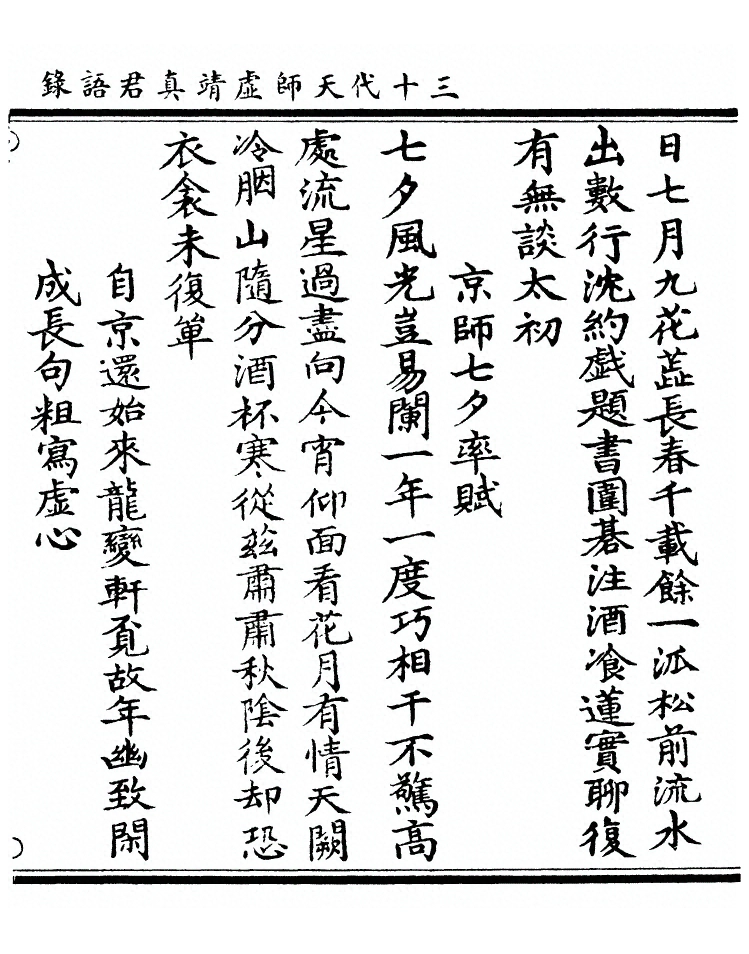 三十代天師虛靖真君語錄
日七月九花蕋長春千載餘一派松前流水
出數行沈約戲題書圍碁注酒飡蓮實聊復
有無談太初
京師七夕率賦
七夕風光豈易闌一年一度巧相干不驚高
處流星過盡向今宵仰面看花月有情天闕
冷胭山隨分酒杯寒從茲肅肅秋陰後却恐
衣衾未復單
自京還始來龍變軒覓故年幽致閑
成長句粗寫虛心